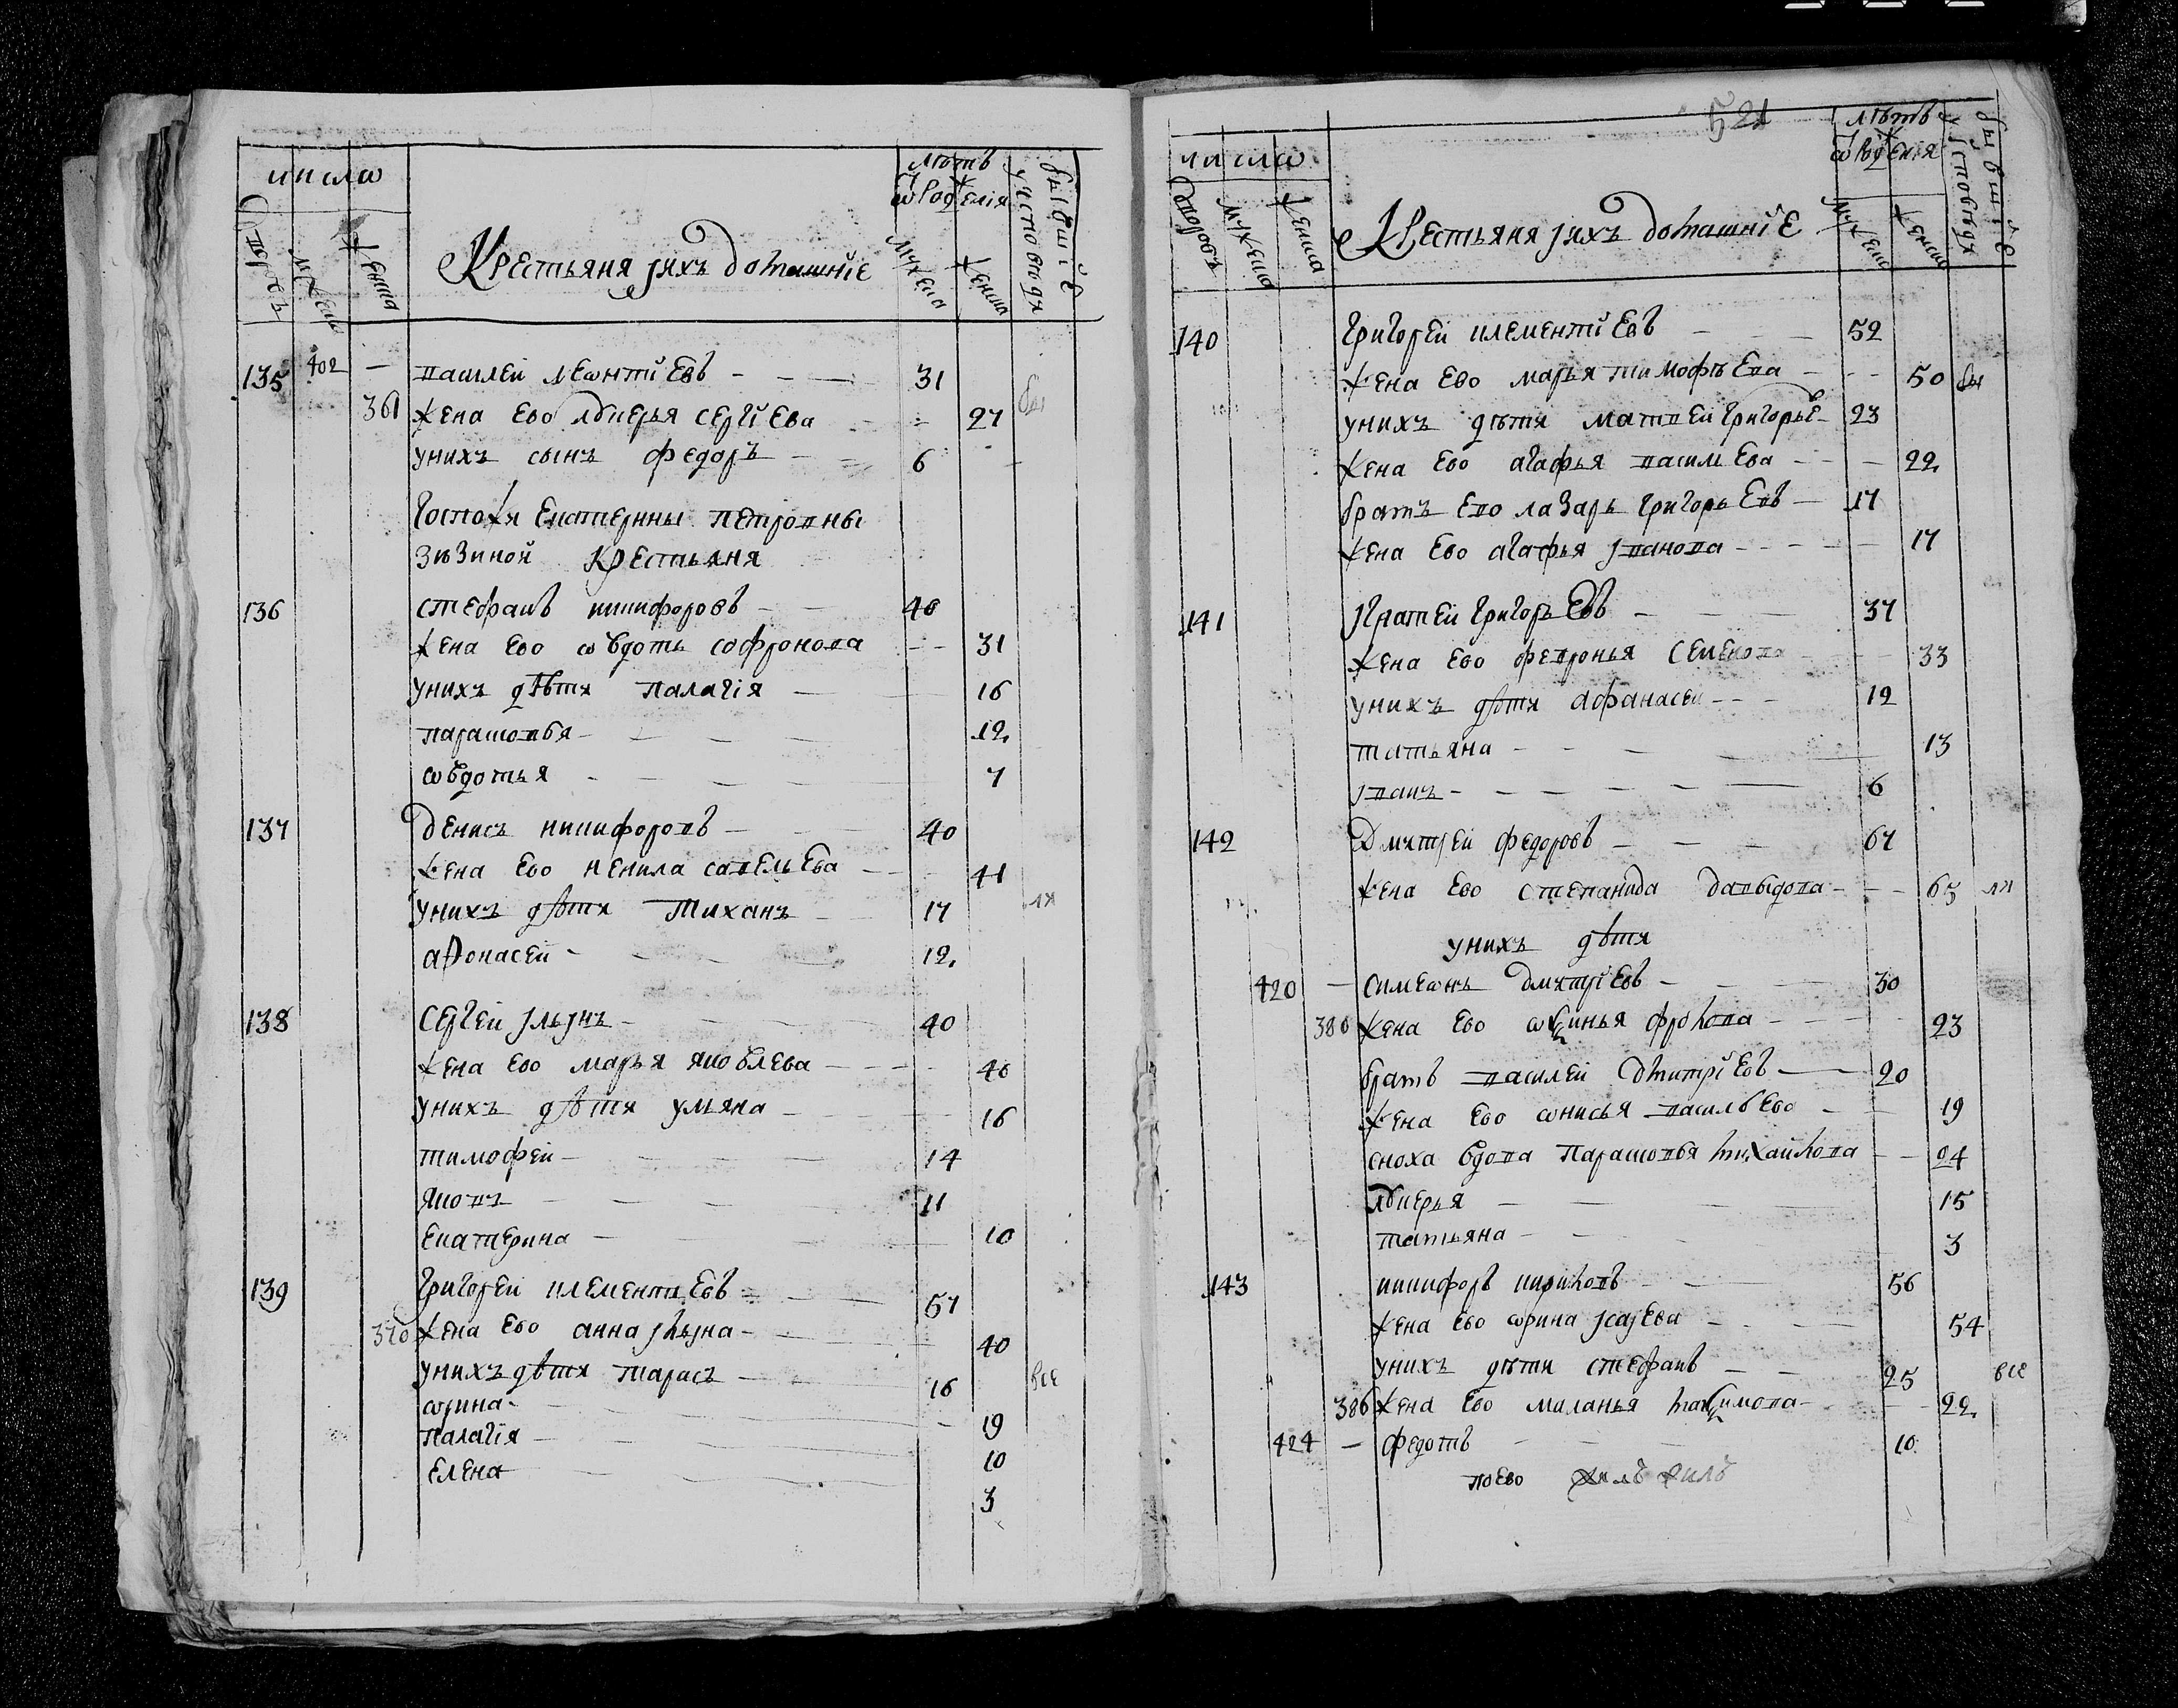 число
дворовъ
мужеска
женска
Крестьяня ихъ домашнїе
лѣтъ
ѿ рожденїя
мужеска
женска
бывшїе
у исповѣди
135 402 — василей леѡнтїевъ 31
361 жена ево лѵкерья сергїева 27 бы
унихъ сынъ федоръ 6
госпожи екатерины петровны
зиѣзиной крестьяня
136 стефанъ никифоровъ 40
жена ево ѡвдотья софронова 31
унихъ дѣти палагїя 16
парасковья 12
ѡвдотья 7
137 денисъ никифоровъ 40
жена ево ненила савельева 41
унихъ дѣти тиханъ 17
аѳонасей 12
138 сергей ильинъ 40
жена ево марья яковлева 40
унихъ дѣти ульяна 16
тимофей 14
яковъ 11
екатерина 10
139 григорей клементьевъ 57
370 жена ево анна ильина 40
унихъ дѣти тарасъ 16 все
ѡрина 19
палагїя 10
елена 3
521
число
дворовъ
мужеска
женска
Крестьяня ихъ домашнїе
лѣтъ
ѿ рожденїя
мужеска
женска
бывшїе
у исповѣди
140 григорей клементїевъ 52
жена ево марья тимофѣева 50 бы
унихъ дѣти матвей григорьев 23
жена ево агафья васильева 22
братъ ево лазарь григорьевъ 17
жена ево агафья иванова 17
141 игнатей григорьевъ 37
жена ево февронья семенова 33
унихъ дѣти афанасей 12
татьяна 13
иванъ 6
142 дмитрей федоровъ 67
жена ево степанида давыдова 65
унихъ дѣти
420 — симеѡнъ дмитрїевъ 30
380 жена ево ѡксинья фролова 23
братъ василей дмитрїевъ 20
жена ево ѡнисья васильева 19
сноха вдова парасковья михайлова 24
лѵкерья 15
татьяна 3
143 никифоръ кириловъ 56
жена ево ѡрина исаева 54
унихъ дѣти стефанъ 25 все
386 жена ево миланья максимова 22
424 — федотъ 10